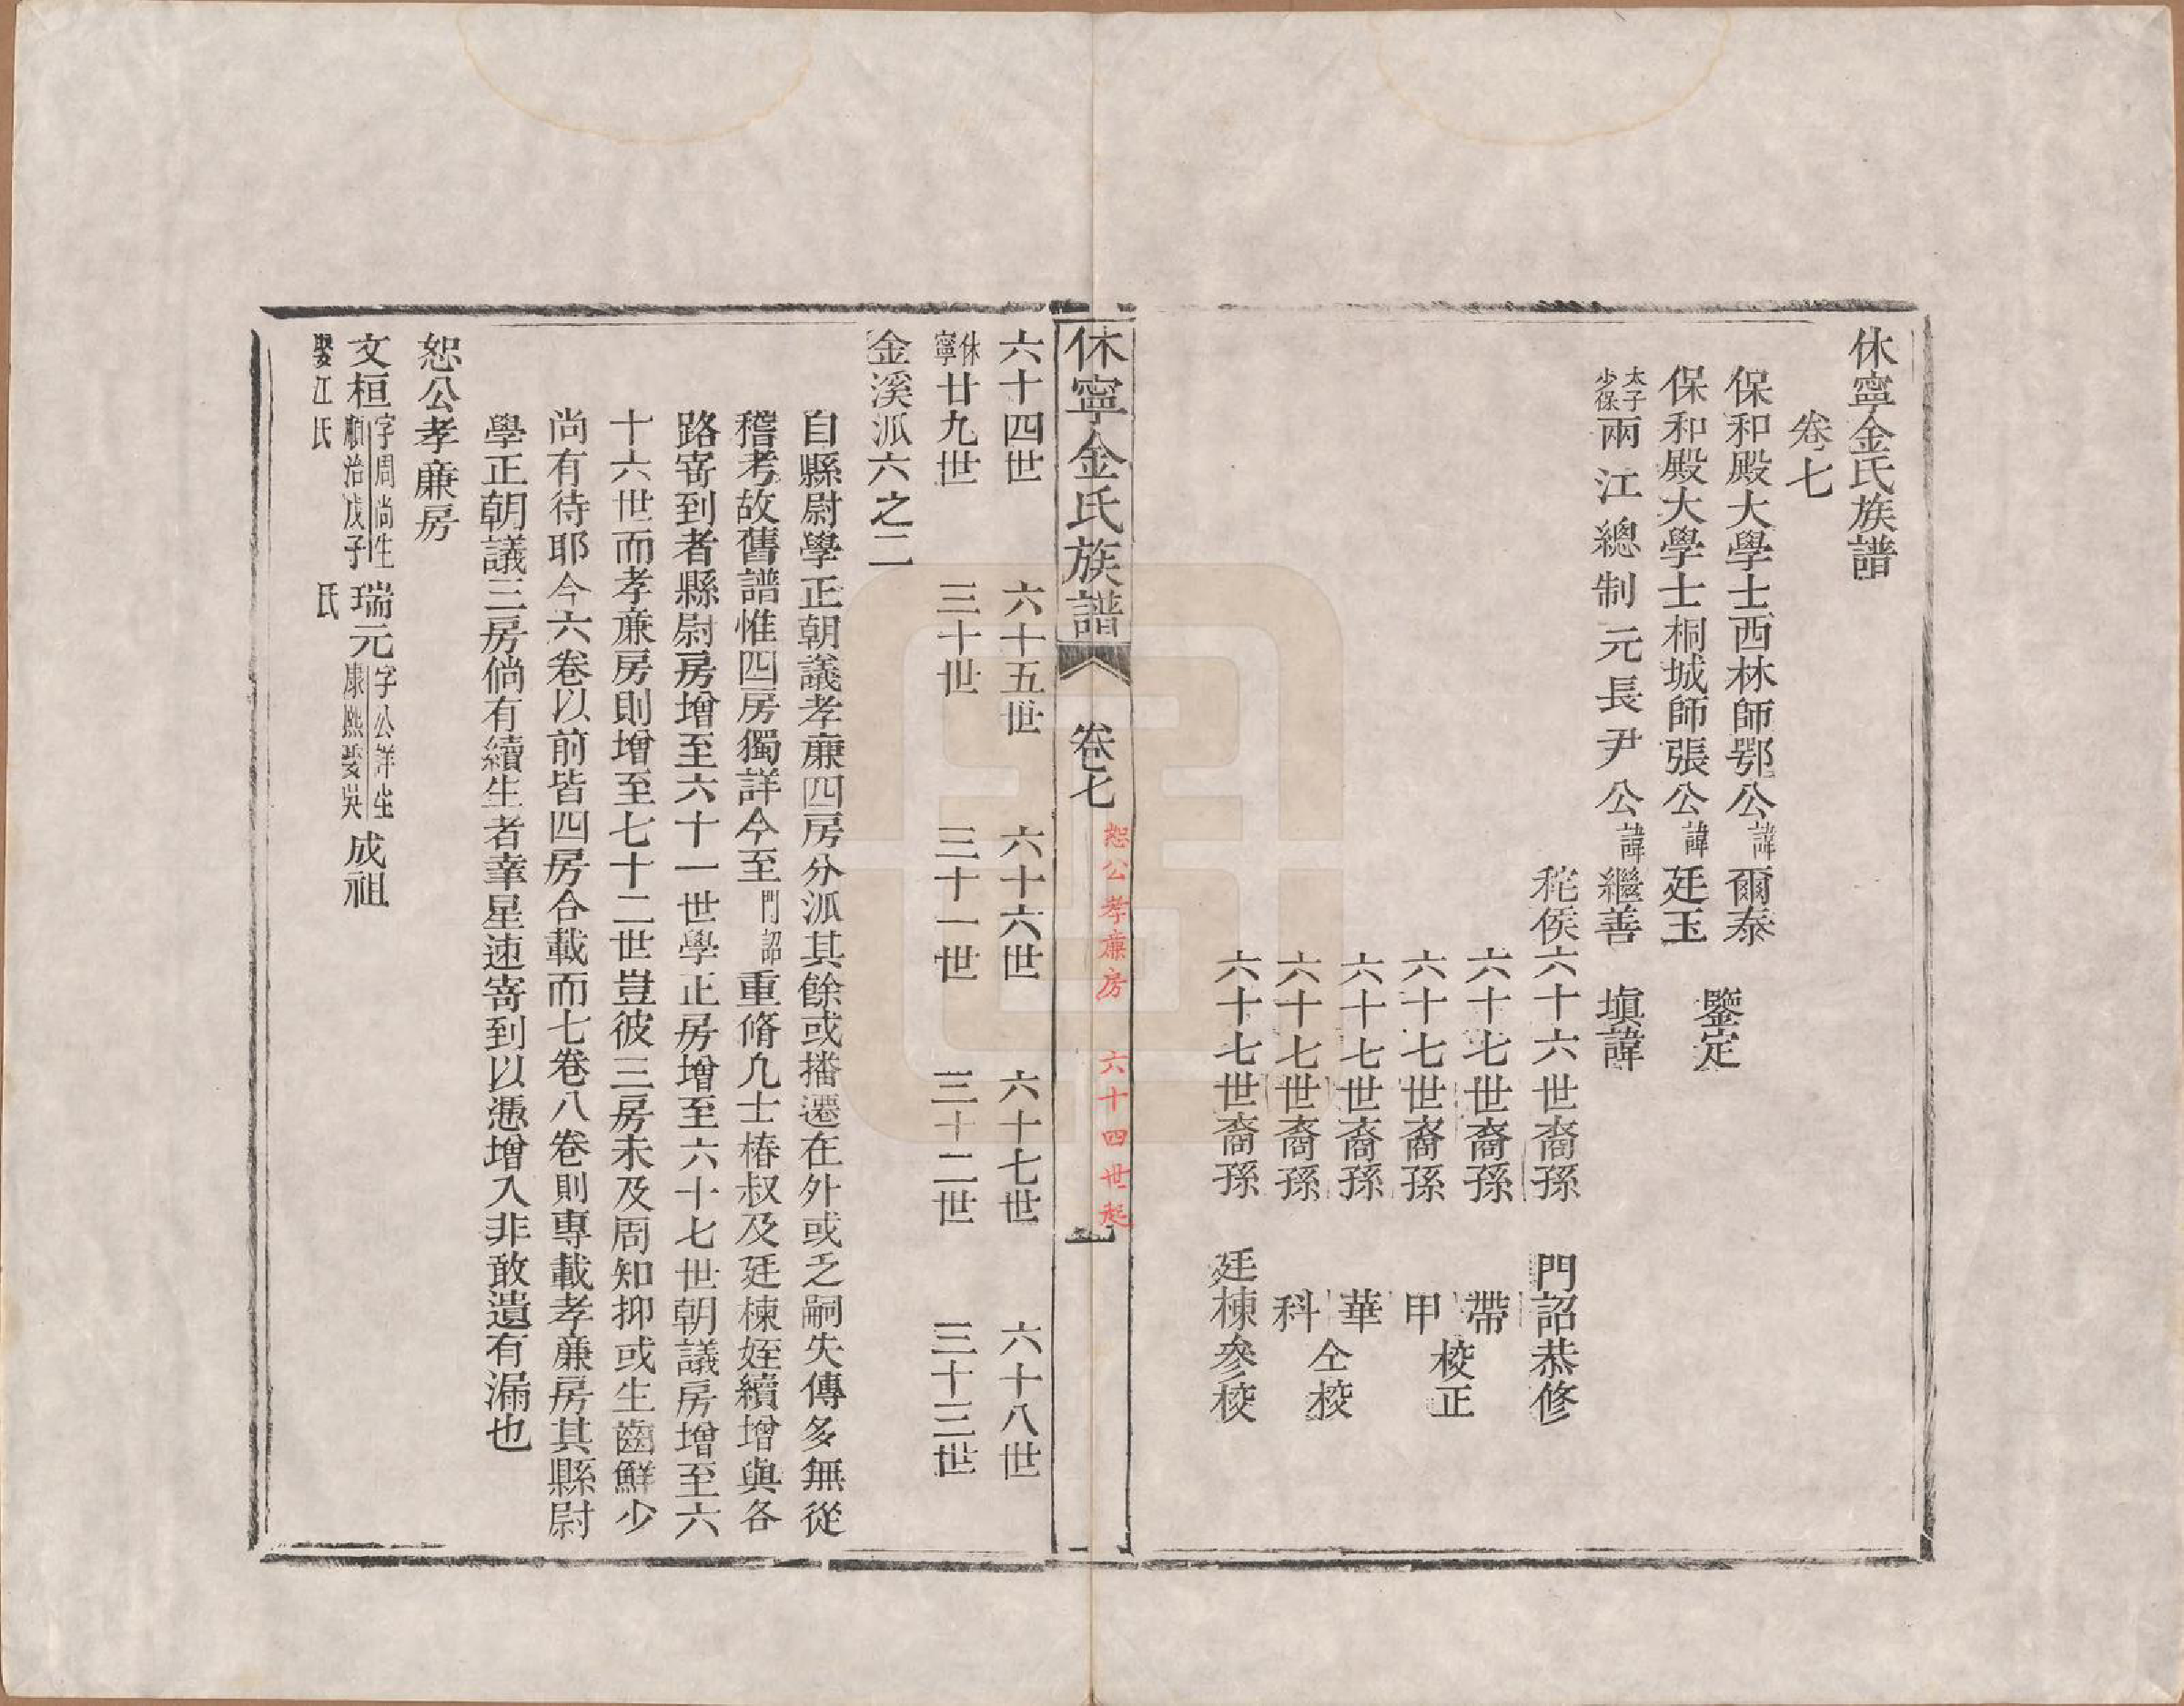 休寧金氏族譜
卷七
保和殿大學士西林師鄂公諱爾泰
保和殿大學士桐城師張公諱廷玉
鑒定
太子少保兩江總制元長尹公諱繼善　塡諱
秺侯六十六世裔孫　門詔恭修
六十七世裔孫　帶
六十七世裔孫　甲
校正
六十七世裔孫　華
六十七世裔孫　科
仝校
六十七世裔孫　廷棟參校
休寧金氏族譜　卷七　恕公孝廉房　六十四世起　一
六十四世　六十五世　六十六世　六十七世　六十八世
休寧廿九世　三十世　三十一世　三十二世　三十三世
金溪派六之二
自縣尉學正朝議孝廉四房分派其餘或播遷在外或乏嗣失傳多無從
稽考故舊譜惟四房獨詳今至門詔重脩凢士椿叔及廷棟姪續增與各
路寄到者縣尉房增至六十一世學正房增至六十七世朝議房增至六
十六世而孝亷房則增至七十二世豈彼三房未及周知抑或生齒鮮少
尚有待耶今六卷以前皆四房合載而七卷八卷則專載孝亷房其縣尉
學正朝議三房倘有續生者幸星速寄到以憑增入非敢遺有漏也
恕公孝亷房
文桓　字周尚生順治戊子　瑞元　字公詳生康熙娶吳　成祖
娶江氏　氏